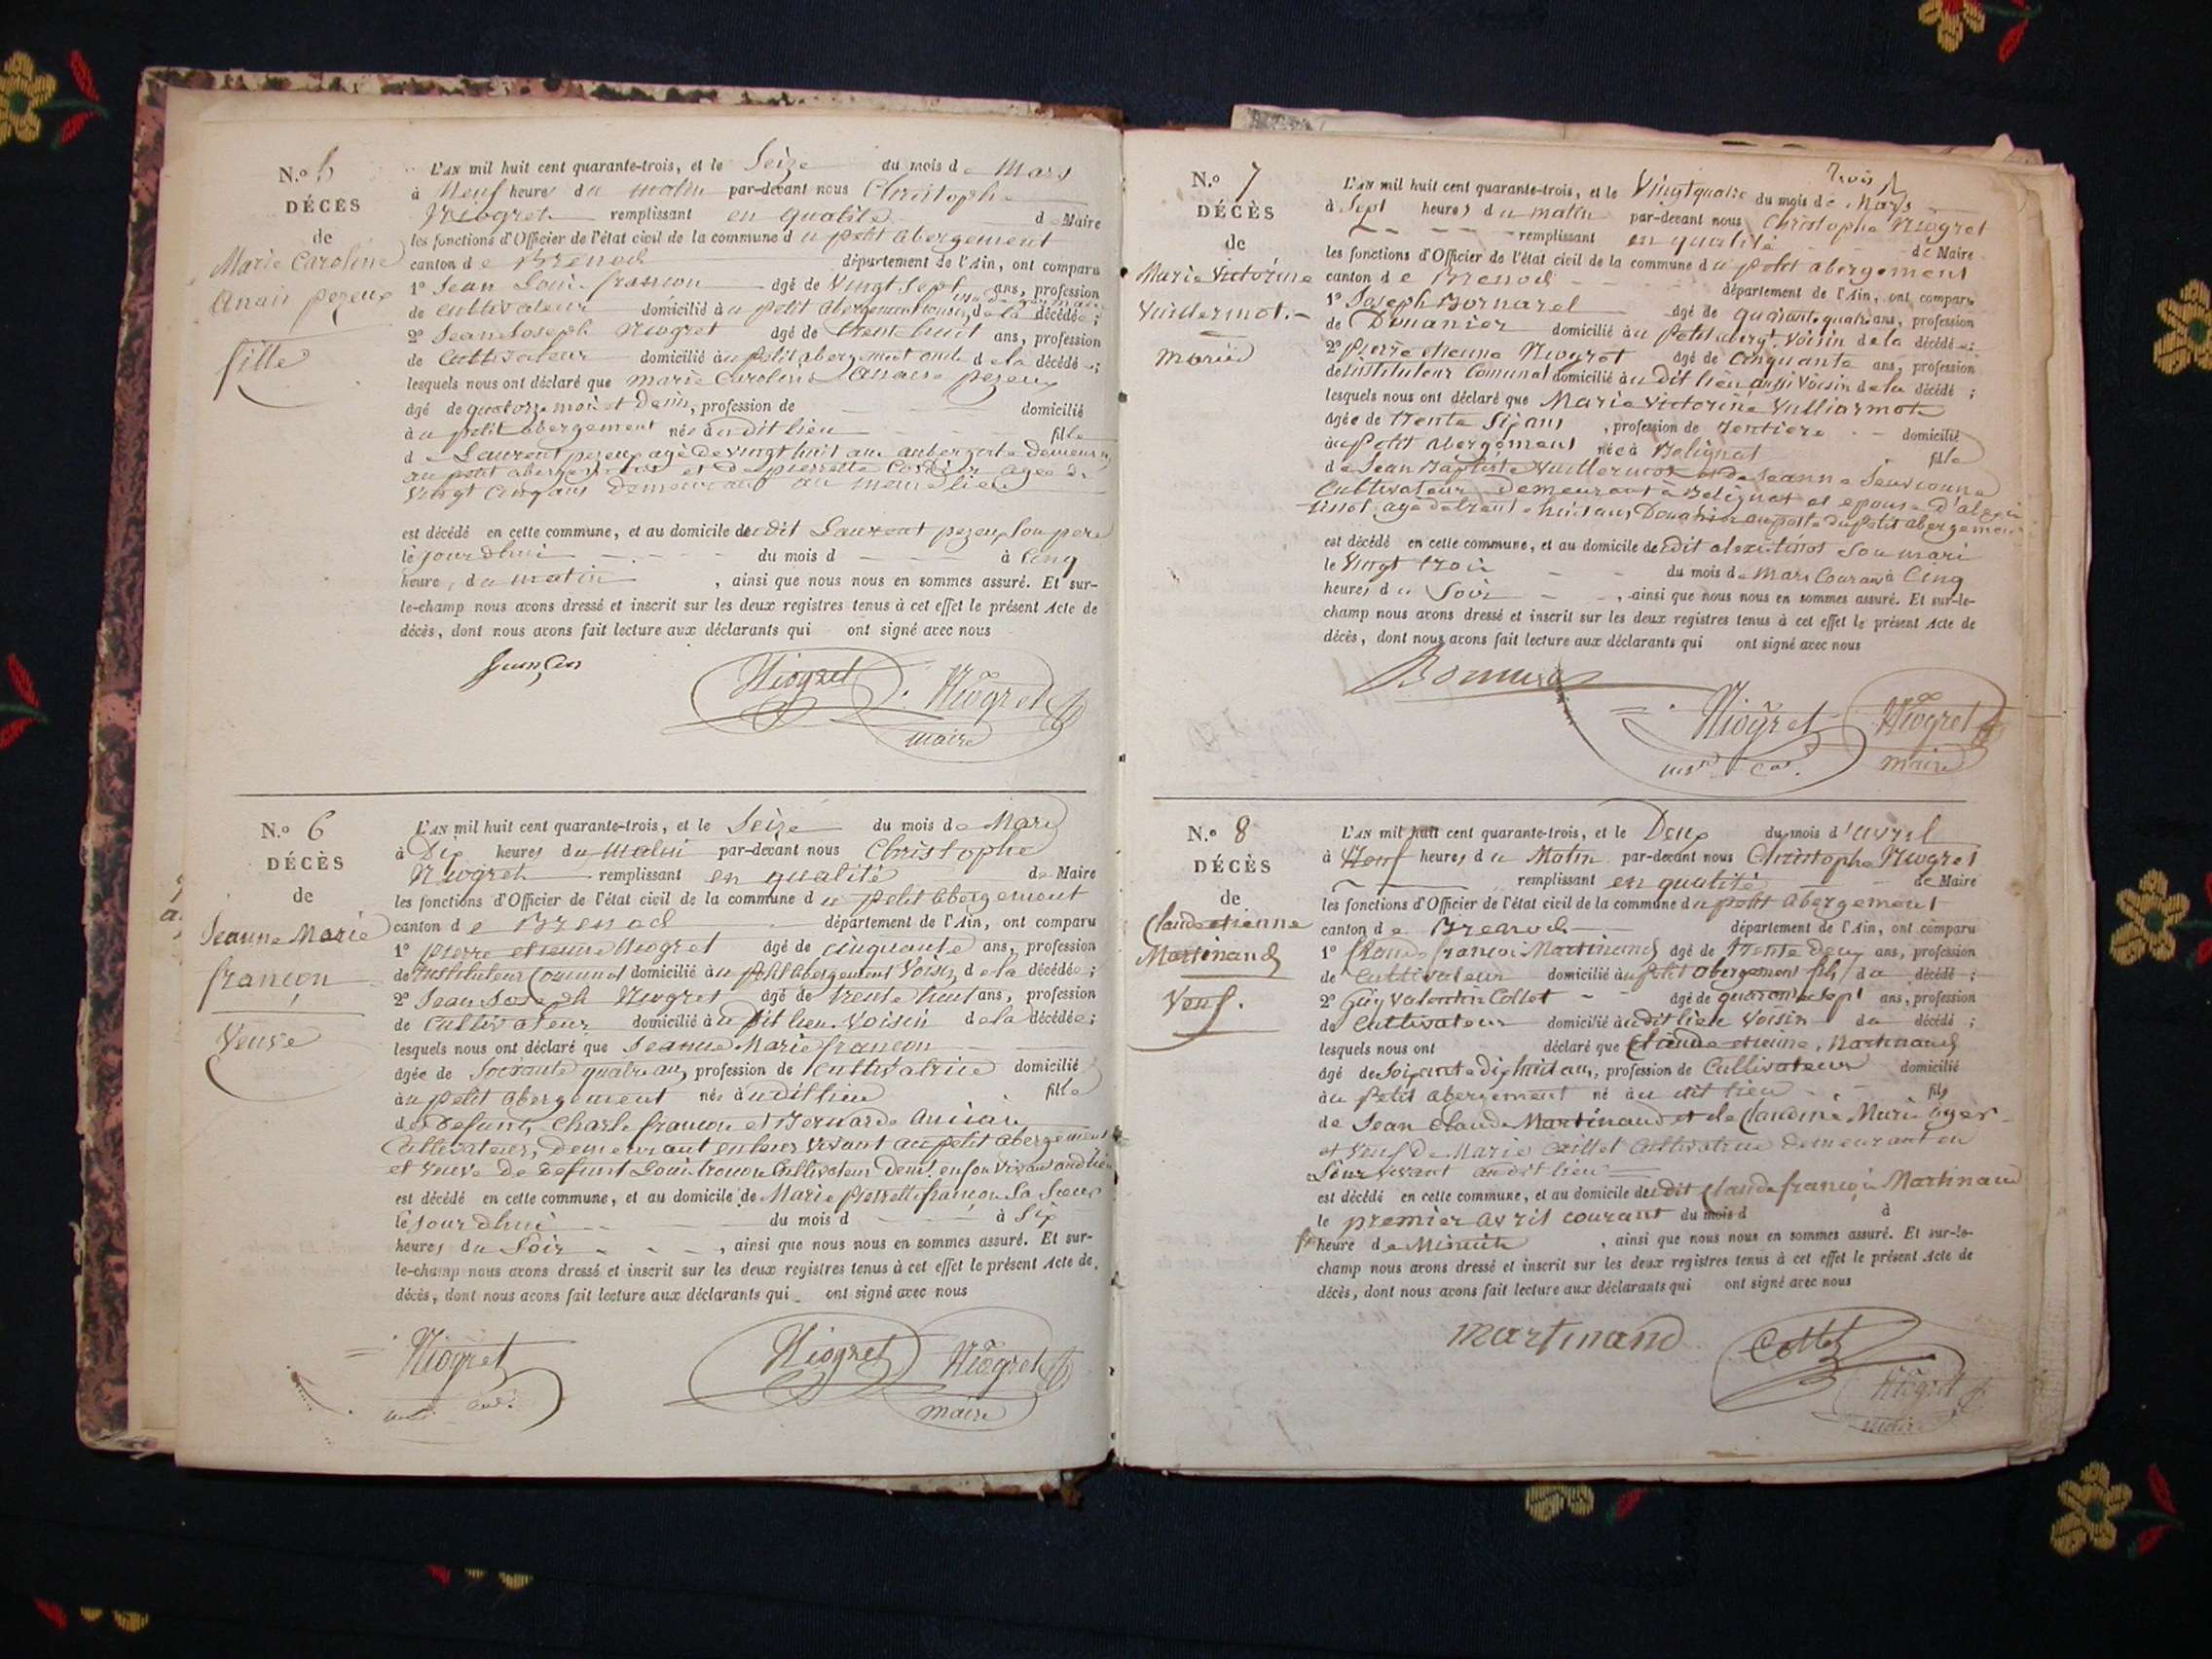 N.o 5
DÉCÈS
de
Marie Caroline
Anais pezeux
fille
L'AN mil huit cent quarante-trois, et le Seize du mois de Mars
à Neuf heures du matin par-devant nous Christophe
Niogret remplissant en qualité de Maire
les fonctions d'Officier de l'état civil de la commune du petit abergement
canton de Brenod département de l'Ain, ont comparu
1o Jean Louis françon âgé de Vingt Sept ans, profession
de cultivateur domicilié au petit abergement de la décédée;
2o Jean Joseph Niogret âgé de trente huit ans, profession
de Cultivateur domicilié au petit abergement oncle de la décédée;
lesquels nous ont déclaré que marie Caroline Anaise pezeux
âgé de quatorze mois et demi, profession de domicilié
au petit abergement née audit lieu fille
de Laurent pezeux agé de vingt huit ans aubergiste demeurant
au petit abergement et de pierrette agée de
Vingt Cinq ans demeurant au meme lieu
est décédé en cette commune, et au domicile dudit Laurent pezeux son pere
le jourdhui du mois d à Cinq
heure, du matin, ainsi que nous nous en sommes assuré. Et sur-
le-champ nous avons dressé et inscrit sur les deux registres tenus à cet effet le présent Acte de
décès, dont nous avons fait lecture aux déclarants qui ont signé avec nous
françon Niogret Niogret
maire
N.o 6
DÉCÈS
de
Jeanne Marie
françon
Veuve
L'AN mil huit cent quarante-trois, et le Seize du mois de Mars
à Dix heures du Matin par-devant nous Christophe
Niogret remplissant en qualité de Maire
les fonctions d'Officier de l'état civil de la commune du petit abergement
canton de Brenod département de l'Ain, ont comparu
1o pierre etienne Niogret âgé de cinquante ans, profession
de Instituteur Communal domicilié au petit abergement Voisin de la décédée;
2o Jean Joseph Niogret âgé de trente huit ans, profession
de Cultivateur domicilié audit lieu Voisin de la décédée;
lesquels nous ont déclaré que Jeanne Marie françon
âgée de Soixante quatre ans, profession de Cultivatrice domicilié
au petit abergement née audit lieu fille
de defunts Charle françon et Bernarde
Cultivateurs, demeurant en leur vivant au petit abergement
et veuve de defunt Louis Cultivateur demt. en son vivant audit lieu
est décédé en cette commune, et au domicile de Marie pierrette françon Sa Soeur
le jourdhui du mois d à Six
heures du Soir, ainsi que nous nous en sommes assuré. Et sur-
le-champ nous avons dressé et inscrit sur les deux registres tenus à cet effet le présent Acte de
décès, dont nous avons fait lecture aux déclarants qui ont signé avec nous
Niogret Niogret Niogret
maire
N.o 7
DÉCÈS
de
Marie Victorine
Vuillermot
Mariée
trois
L'AN mil huit cent quarante-trois, et le Vingt quatre du mois de Mars
à Sept heures du matin par-devant nous Christophe Niogret
remplissant en qualité de Maire
les fonctions d'Officier de l'état civil de la commune du petit abergement
canton de Brenod département de l'Ain, ont comparu
1o Joseph Bornarel âgé de quarante quatre ans, profession
de Douanier domicilié au petit abergt. Voisin de la décédée;
2o pierre etienne Niogret âgé de Cinquante ans, profession
de instituteur Comunal domicilié audit lieu aussi Voisin de la décédé;
lesquels nous ont déclaré que Marie Victorine Vulliarmot
âgée de trente Six ans, profession de rentiere domicilié
au petit abergement née à Belignat fille
de Jean Baptiste Vuillermoz et de Jeanne
Cultivateurs Demeurant à Belignat et epouse d'alexis
tissot agé de trente huit ans Douanier au poste du petit abergement
est décédé en cette commune, et au domicile dudit alexis tissot Son mari
le Vingt trois du mois de Mars Courant à Cinq
heures du Soir, ainsi que nous nous en sommes assuré. Et sur-le-
champ nous avons dressé et inscrit sur les deux registres tenus à cet effet le présent Acte de
décès, dont nous avons fait lecture aux déclarants qui ont signé avec nous
Niogret Niogret
maire
N.o 8
DÉCÈS
de
Claude etienne
Martinand
Veuf.
L'AN mil huit cent quarante-trois, et le Deux du mois d'avril
à Neuf heures du Matin par-devant nous Christophe Niogret
remplissant en qualité de Maire
les fonctions d'Officier de l'état civil de la commune du petit abergement
canton de Brenod département de l'Ain, ont comparu
1o Claude françois Martinand âgé de trente Deux ans, profession
de Cultivateur domicilié au petit abergement fils du décédé;
2o Guy Valentin Collet âgé de quarante Sept ans, profession
de Cultivateur domicilié audit lieu Voisin du décédé;
lesquels nous ont déclaré que Claude etienne Martinand
âgé de Soixante dix huit ans, profession de Cultivateur domicilié
au petit abergement né au dit lieu fils
de Jean Claude Martinand et de Claudine Marie
et Veuf de Marie Caillet Cultivatrice demeurant en
Leur vivant audit lieu
est décédé en cette commune, et au domicile dudit Claude françois Martinand
le premier avril courant du mois d à
heure de Minuit, ainsi que nous nous en sommes assuré. Et sur-le-
champ nous avons dressé et inscrit sur les deux registres tenus à cet effet le présent Acte de
décès, dont nous avons fait lecture aux déclarants qui ont signé avec nous
martinand Collet
Niogret
maire